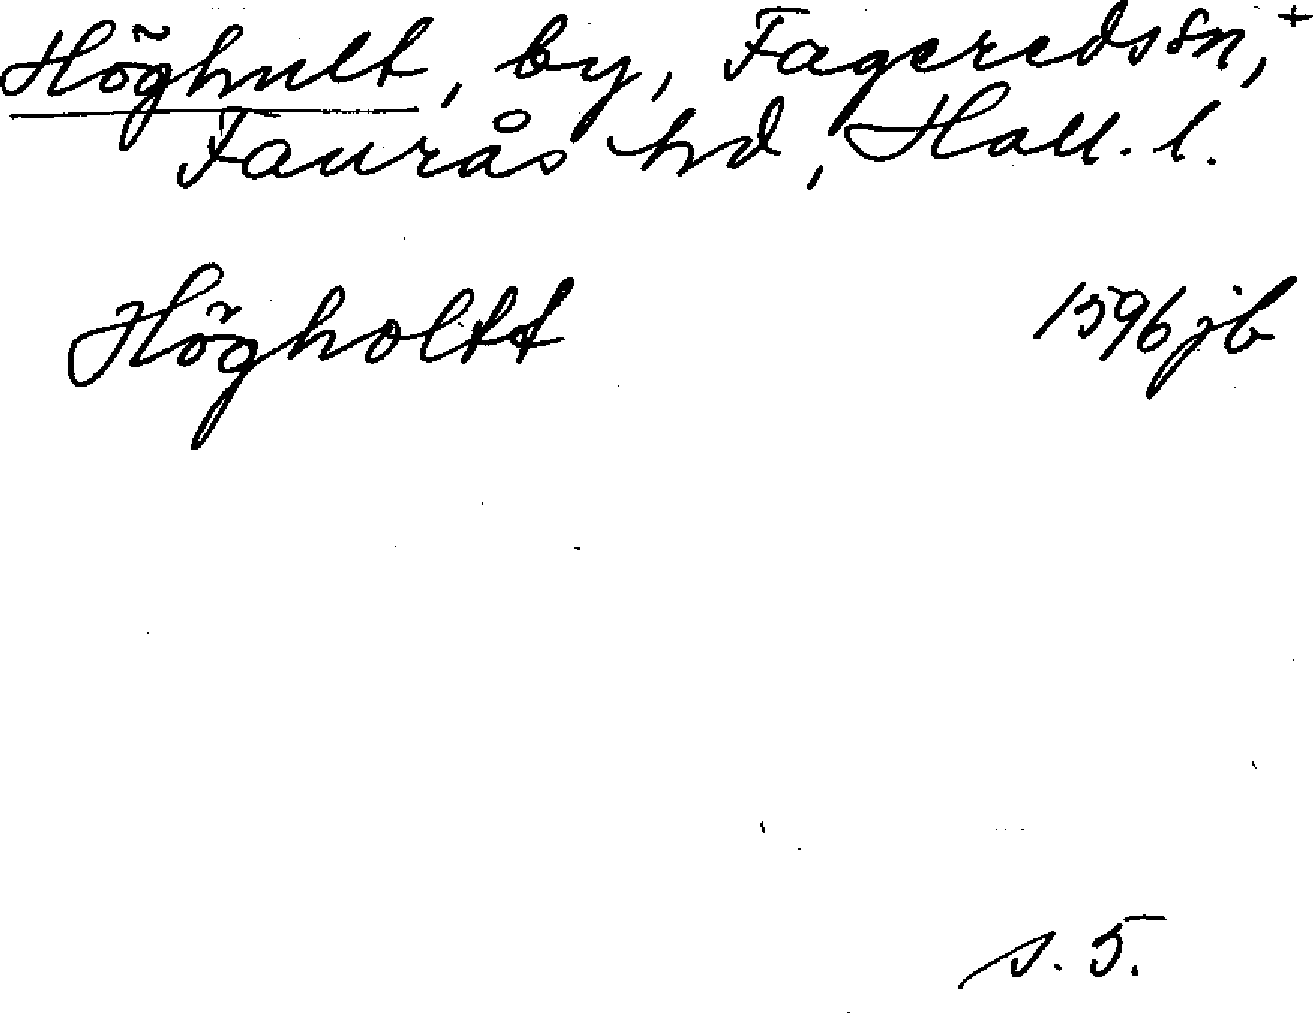 Höghult, by, Fagereds sn, +
Faurås hd, Hall. l.
Högholtt 1596 jb
s. 5.